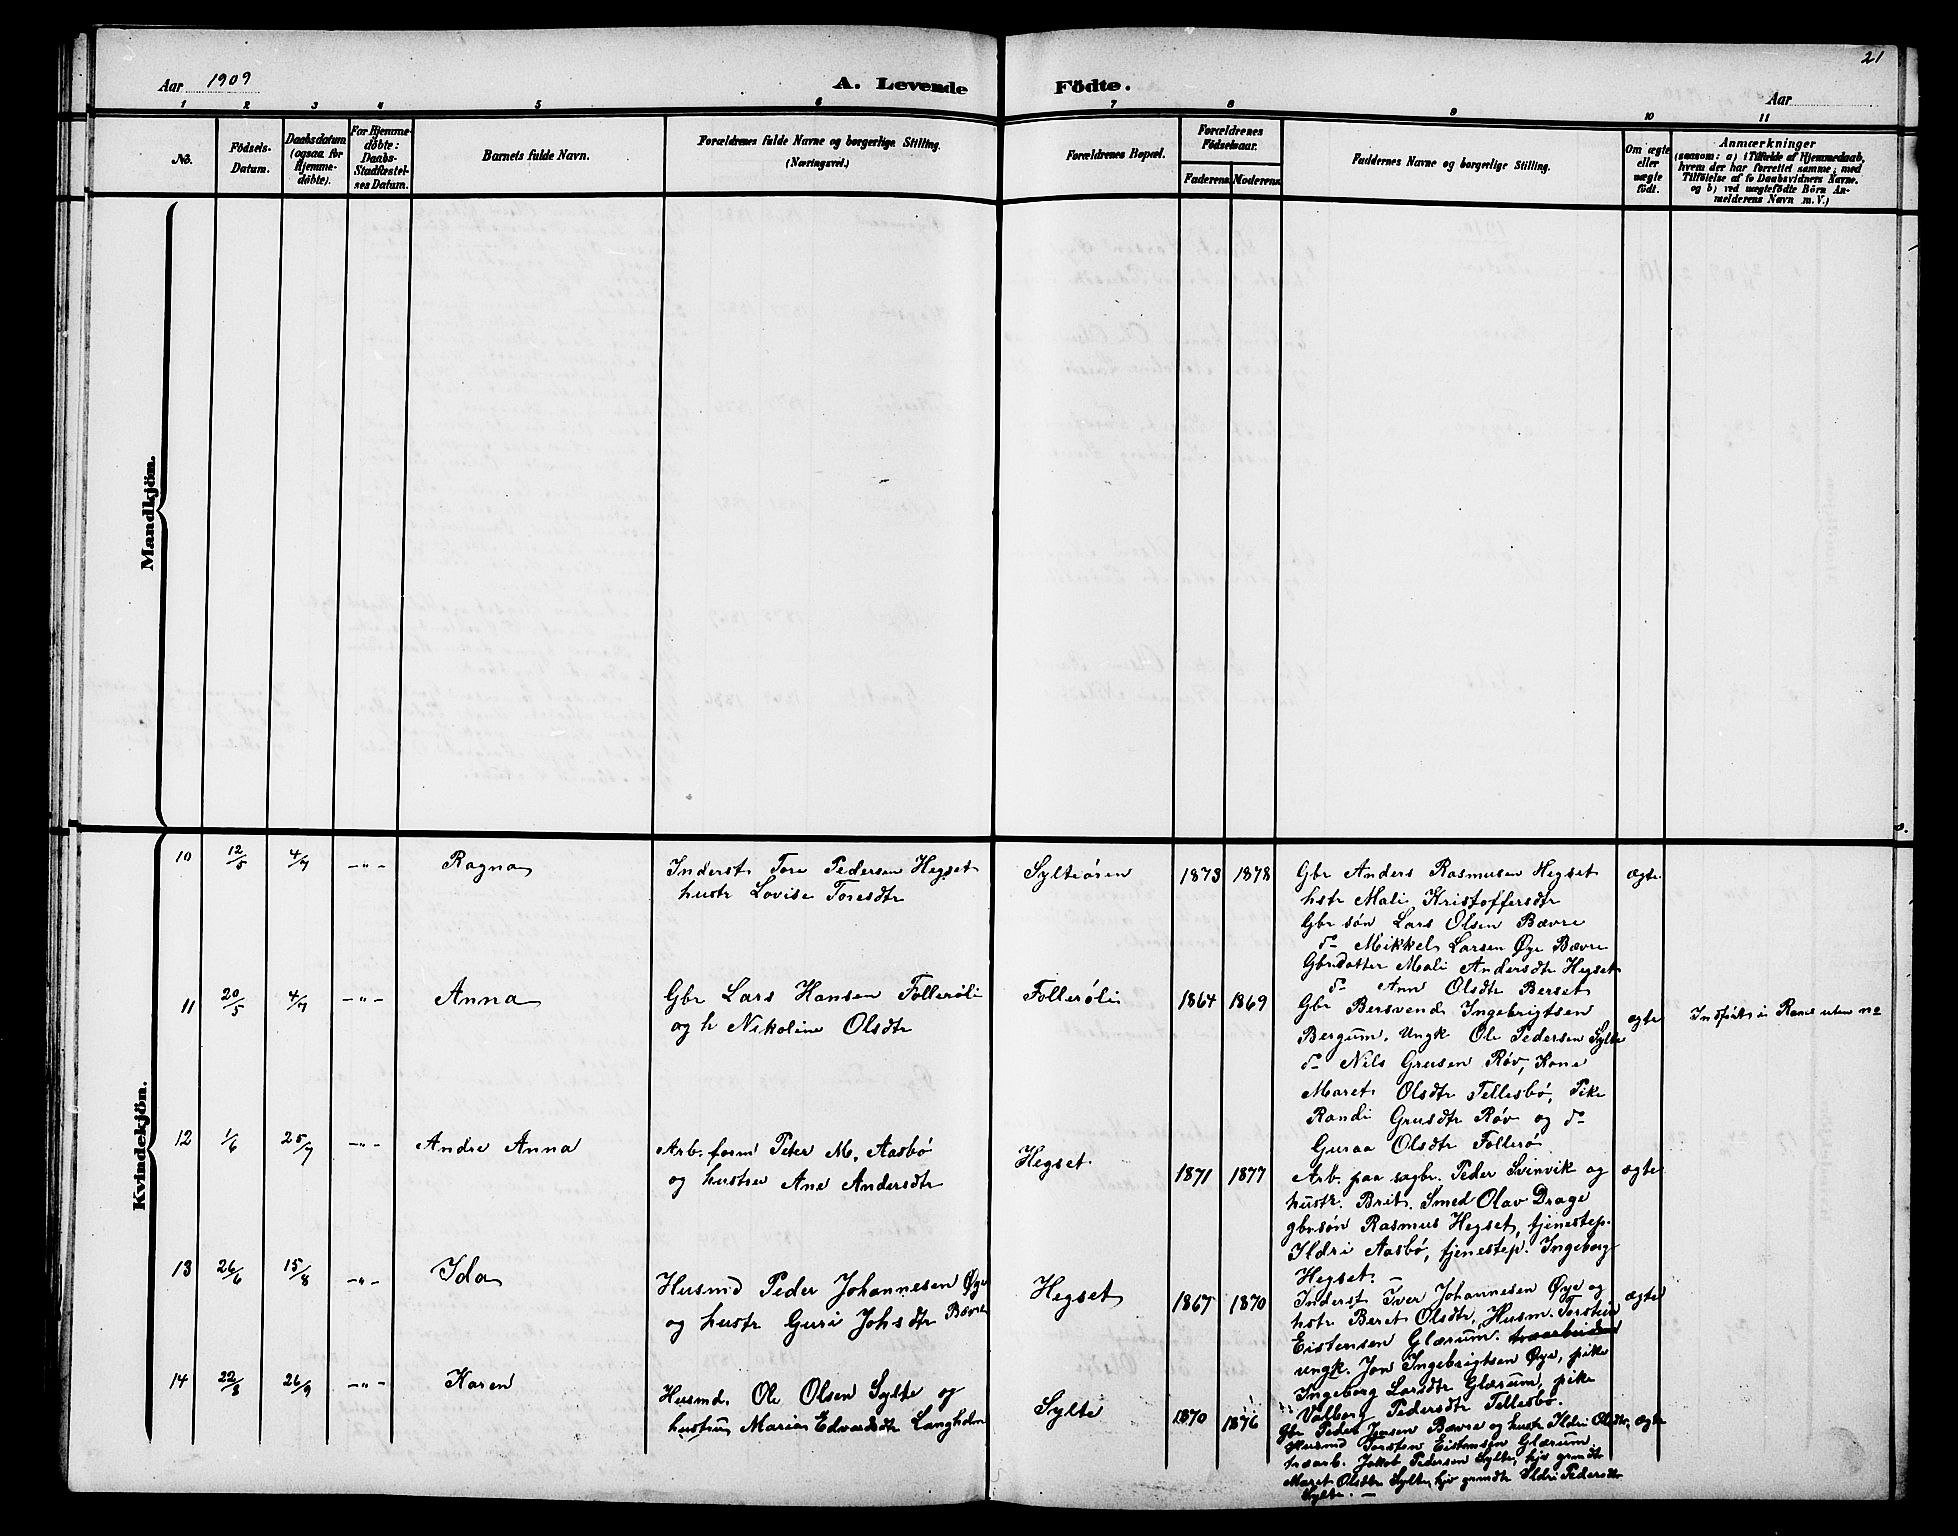 21
Aar 1909
A. Levende Födte.
Aar
1 2 3 4 5 6 7 8 9 10 11
No.
Födsels-
Datum.
Daabsdatum
(ogsaa for
Hjemme-
döbte).
For Hjemme-
döbte:
Daabs-
Stadfæstel-
ses Datum.
Barnets fulde Navn.
Forældrenes fulde Navne og borgerlige Stilling.
(Næringsvei.)
Forældrenes Bopæl.
Forældrenes
Födselsaar.
Faderens. Moderens.
Faddernes Navne og borgerlige Stilling.
Om ægte
eller
uægte
födt.
Anmærkninger
(saasom: a) i Tilfælde af Hjemmedaab,
hvem der har forrettet samme, med
Tilföielse af to Daabsvidners Navne.
og b) ved uægtefödte Börn An-
melderens Navn m. V.)
Mandkjön.
Kvindekjön.
10 12/5 4/7 -"- Ragna
Inderst Tore Pedersen Hegset
hustr Lovise Toresdtr
Sylteören 1873 1878
Gbr Anders Rasmusen Hegset
hstr Mali Kristoffersdtr
Gbr sön Lars Olsen Bævre
do Mikkel Larsen Øye Bævre
Gbrdatter Mali Andersdtr Hegset
do Ann Olsdtr Berset
ægte
11 20/5 4/7 -"- Anna
Gbr Lars Hansen Folleröli
og h Nikoline Olsdtr
Folleröli 1864 1869
Gbr Bersvend Ingebrigtsen
Bergum, Ungk Ole Pedersen Sylte
do Nils Grusen Röv, Kone
Maret Olsdtr Tellesbö, Pike
Randi Grusdtr Röv og do
Guraa Olsdtr Follerö
ægte
Indförte i Rane uten no
12 1/6 25/7 -"- Andre Anna
Arb. form Peter M. Aasbö
og hustru Ane Andersdtr
Hegset 1871 1877
Arb. paa sagbr. Peder Svinvik og
hustr. Brit. Smed Olav Drage
gbrsön Rasmus Hegset, tjenestep.
Ildri Aasbö, tjenestep. Ingeborg
Hegset. —
ægte
13 26/6 15/8 -"- Ida
Husmd Peder Johannesen Øye
og hustr Guri Johsdtr Bævre
Hegset 1867 1870
Inderst Iver Johannesen Øye og
hstr Beret Olsdtr, Husm. Torstein
Eistensen Glærum.
ungk. Jon Ingebrigtsen Øye, pike
Ingeborg Larsdtr Glærum, pike
Valborg Pedersdtr Tellesbö.
ægte
14 22/8 26/9 -"- Karen
Husmd. Ole Olsen Sylte og
hustru Marie Edvardsdtr Langholm
Sylte 1870 1876
Gbr Peder Jensen Bævre og hustr Ildri Olsdtr,
Husmd Torsten Eistensen Glærum,
træarb. Jakob Pedersen Sylte, hjv grmdtr
Maret Olsdtr Sylte, hjv grmdtr Ildri Pedersdtr
Sylte. —
ægte